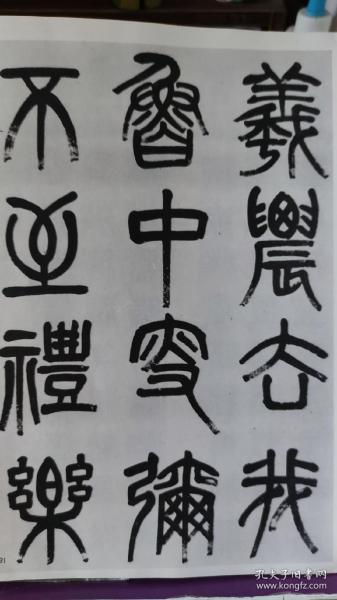 羲農去我
魯中叟彌
不至禮樂
91
孔夫子旧书网
www.kongfz.com